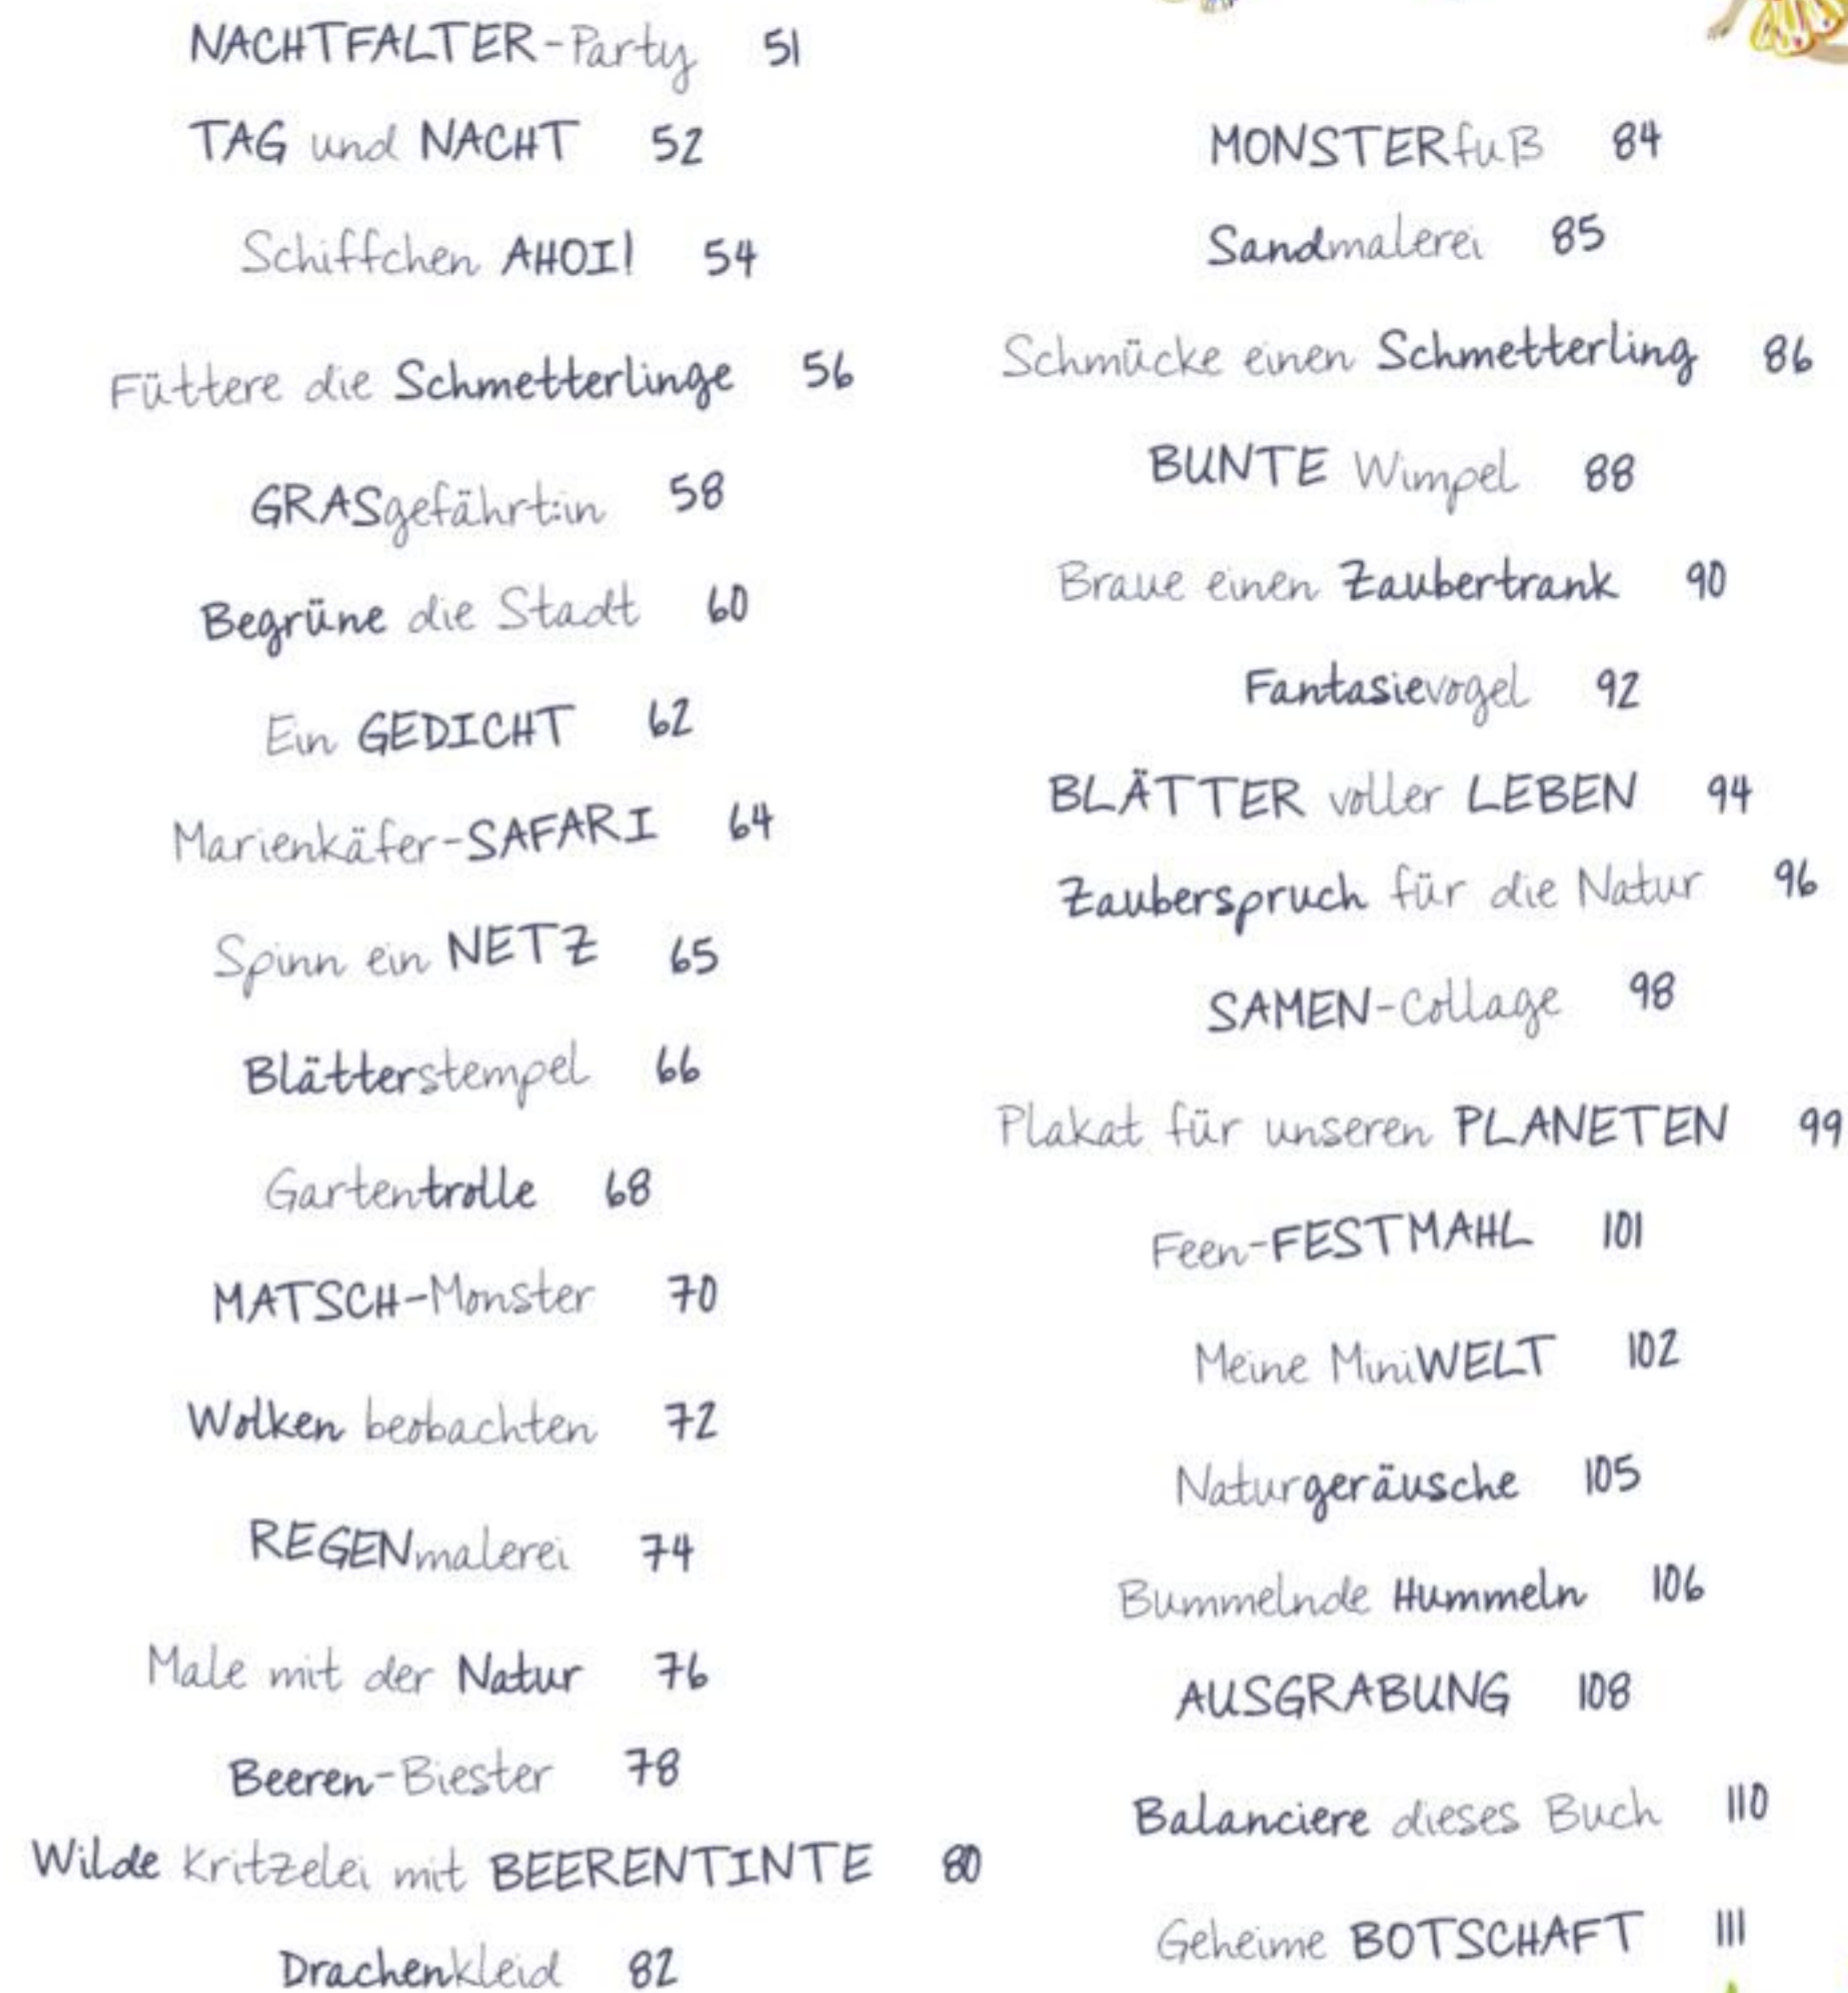 NACHTFALTER-Party 51
TAG und NACHT 52
Schiffchen AHOI! 54
Füttere die Schmetterlinge 56
GRASgefährt:in 58
Begrüne die Stadt 60
Ein GEDICHT 62
Marienkäfer-SAFARI 64
Spinn ein NETZ 65
Blätterstempel 66
Gartentrolle 68
MATSCH-Monster 70
Wolken beobachten 72
REGENmalerei 74
Male mit der Natur 76
Beeren-Biester 78
Wilde Kritzelei mit BEERENTINTE 80
Drachenkleid 82
MONSTERfuß 84
Sandmalerei 85
Schmücke einen Schmetterling 86
BUNTE Wimpel 88
Braue einen Zaubertrank 90
Fantasievogel 92
BLÄTTER voller LEBEN 94
Zauberspruch für die Natur 96
SAMEN-Collage 98
Plakat für unseren PLANETEN 99
Feen-FESTMAHL 101
Meine MiniWELT 102
Naturgeräusche 105
Bummelnde Hummeln 106
AUSGRABUNG 108
Balanciere dieses Buch 110
Geheime BOTSCHAFT 111